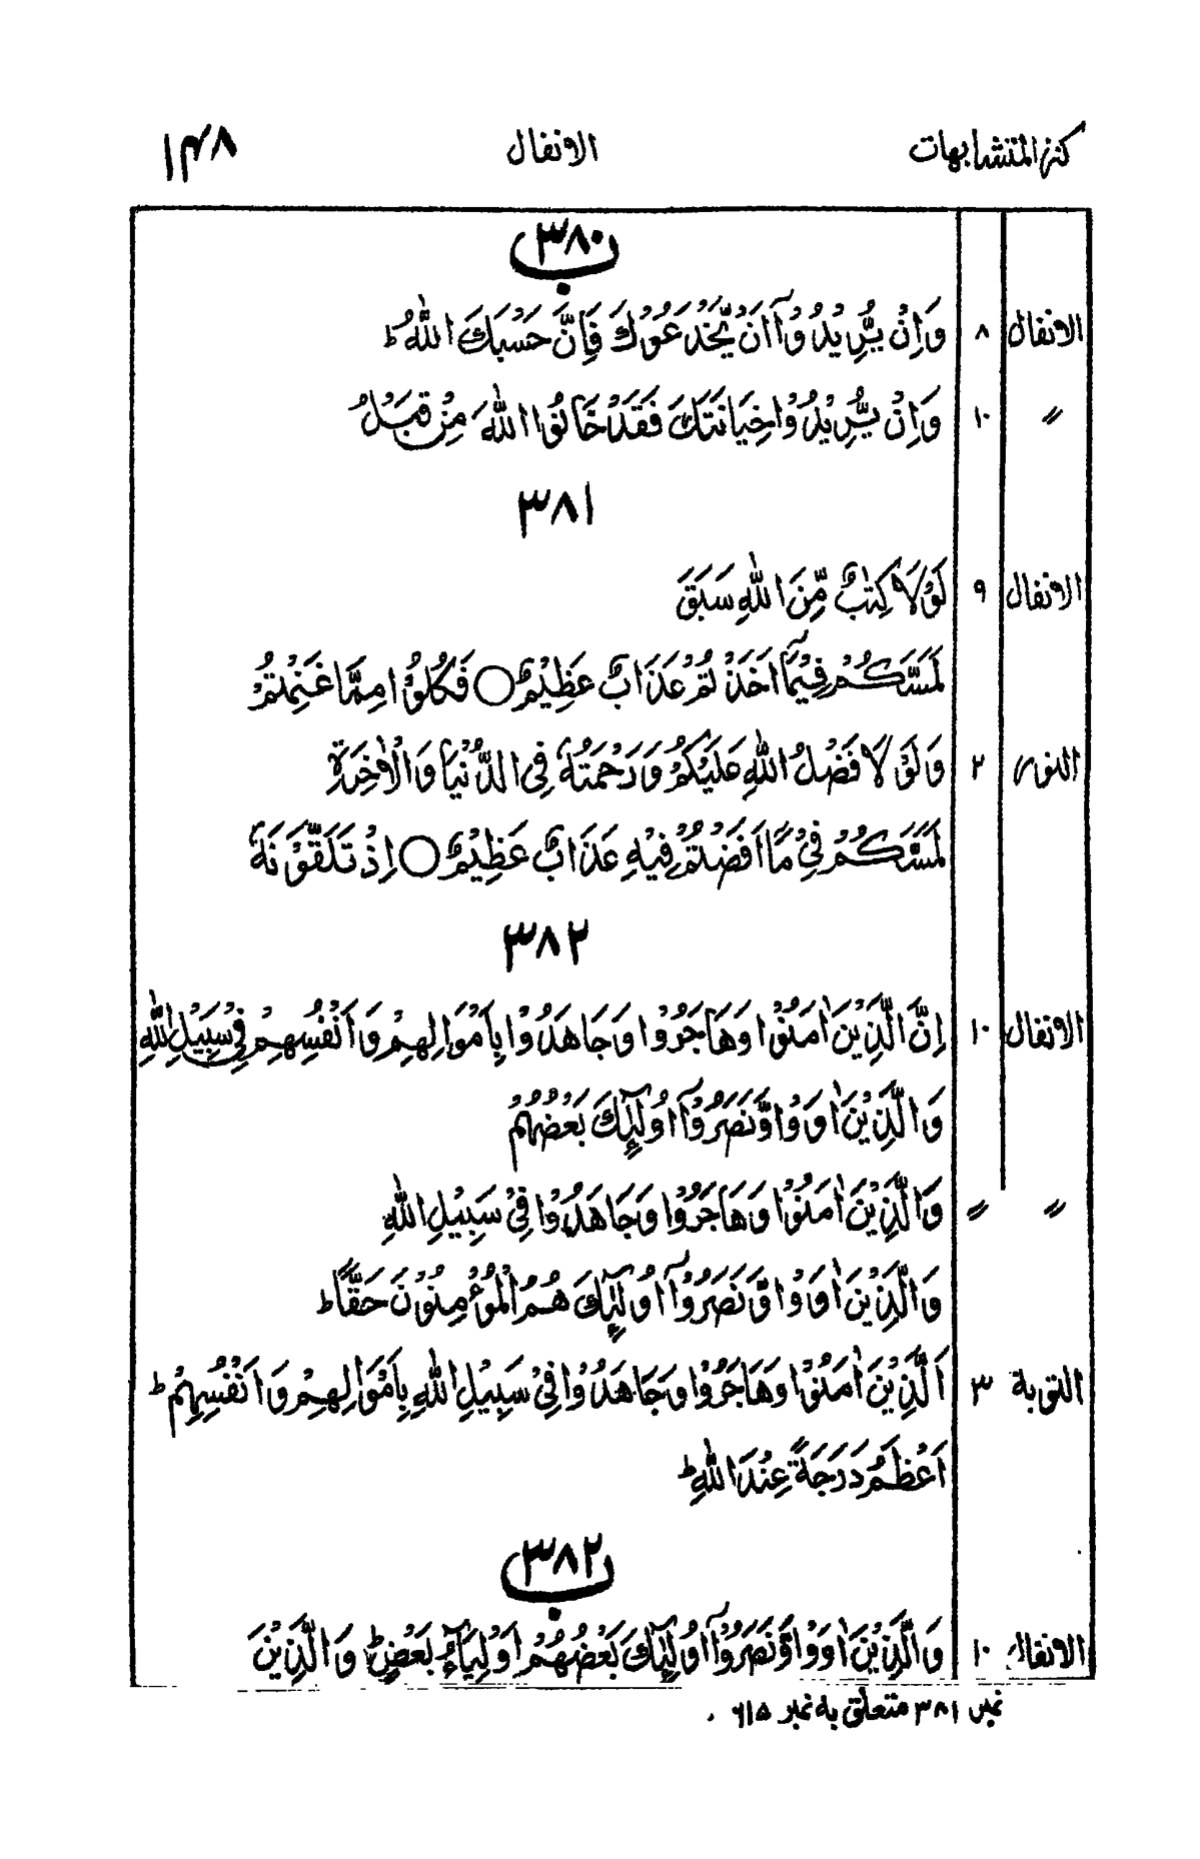 كنز المتشابهات الانفال ١٤٨
٣٨٠ ب
الانفال ٨ وَاِنْ يُّرِيْدُوْۤا اَنْ يَّخْدَعُوْكَ فَاِنَّ حَسْبَكَ اللّٰهُ ؕ
〃 ١٠ وَاِنْ يُّرِيْدُوْا خِيَانَتَكَ فَقَدْ خَانُوا اللّٰهَ مِنْ قَبْلُ
٣٨١
الانفال ٩ لَوْلَا كِتٰبٌ مِّنَ اللّٰهِ سَبَقَ
لَمَسَّكُمْ فِيْمَاۤ اَخَذْتُمْ عَذَابٌ عَظِيْمٌ ○ فَكُلُوْا مِمَّا غَنِمْتُمْ
النور ٢ وَلَوْ لَا فَضْلُ اللّٰهِ عَلَيْكُمْ وَرَحْمَتُهٗ فِى الدُّنْيَا وَالْاٰخِرَةِ
لَمَسَّكُمْ فِيْ مَاۤ اَفَضْتُمْ فِيْهِ عَذَابٌ عَظِيْمٌ ○ اِذْ تَلَقَّوْنَهٗ
٣٨٢
الانفال ١٠ اِنَّ الَّذِيْنَ اٰمَنُوْا وَهَاجَرُوْا وَجَاهَدُوْا بِاَمْوَالِهِمْ وَاَنْفُسِهِمْ فِيْ سَبِيْلِ اللّٰهِ
وَالَّذِيْنَ اٰوَوْا وَّنَصَرُوْۤا اُولٰٓئِكَ بَعْضُهُمْ
〃 〃 وَالَّذِيْنَ اٰمَنُوْا وَهَاجَرُوْا وَجَاهَدُوْا فِيْ سَبِيْلِ اللّٰهِ
وَالَّذِيْنَ اٰوَوْا وَّنَصَرُوْۤا اُولٰٓئِكَ هُمُ الْمُؤْمِنُوْنَ حَقًّا ؕ
التوبة ٣ اَلَّذِيْنَ اٰمَنُوْا وَهَاجَرُوْا وَجَاهَدُوْا فِيْ سَبِيْلِ اللّٰهِ بِاَمْوَالِهِمْ وَاَنْفُسِهِمْ ؕ
اَعْظَمُ دَرَجَةً عِنْدَ اللّٰهِ ؕ
٣٨٢ ب
الانفال ١٠ وَالَّذِيْنَ اٰوَوْا وَّنَصَرُوْۤا اُولٰٓئِكَ بَعْضُهُمْ اَوْلِيَآءُ بَعْضٍ ؕ وَالَّذِيْنَ
نمبر ٣٨١ متعلق به نمبر ٦١٥ .